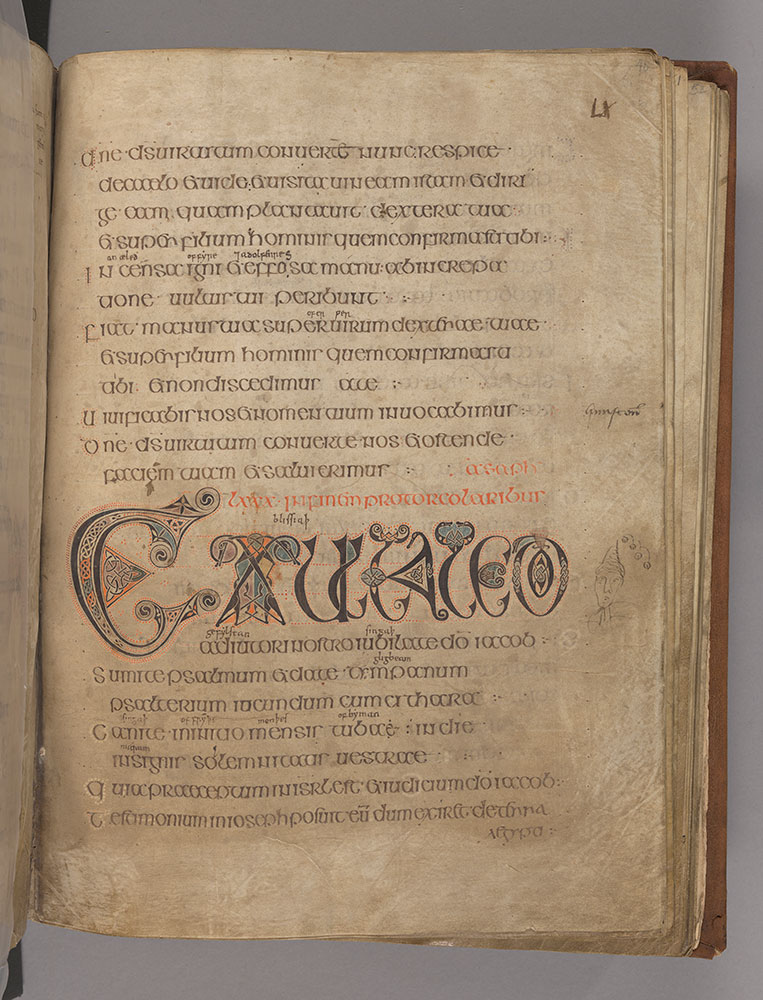 Dne dsuirtutum conuertē nunc: respice
decaelo &uide, &uisita uineam istam &diri
ge eam, quam plantauit dextera tua
&super filium hominis quem confirmasti tibi:
offyre
Incensa igni &effosa manu: abincrepa
tione uultus tui peribunt
ofer
Fiat manus tua super uirum dexterae tuae
&super filium hominis quem confirmasti
tibi &nondiscedimus ate
Uiuificabis nos &nomen tuum inuocabimus:
Dne dsuirtutum conuerte nos &ostende
faciem tuam &salui erimus: asaph
lxxx infinem protorcolaribus
blissiaþ
EXULTATEDO
gefylstan singaþ
adiutori nostro iubilate dō iacob:
gligbeam
Sumite psalmum &date tympanum
psalterium iucundum cum cithara
singaþ monþes of byman
Canite ininitio mensis tuba: indie
insignis solemnitatis uestrae
Quia praeceptum inisrl est &iudicium dō iacob:
Testimonium inioseph posuit eū dum exiret deterra
aegypti: